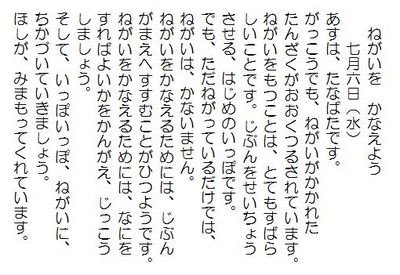 ねがいを　かなえよう
七月六日（水）
あすは、たなばたです。
がっこうでも、ねがいがかかれた
たんざくがおおくつるされています。
ねがいをもつことは、とてもすばら
しいことです。じぶんをせいちょう
させる、はじめのいっぽです。
でも、ただねがっているだけでは、
ねがいは、かないません。
ねがいをかなえるためには、じぶん
がまえへすすむことがひつようです。
ねがいをかなえるためには、なにを
すればよいかをかんがえ、じっこう
しましょう。
そして、いっぽいっぽ、ねがいに、
ちかづいていきましょう。
ほしが、みまもってくれています。